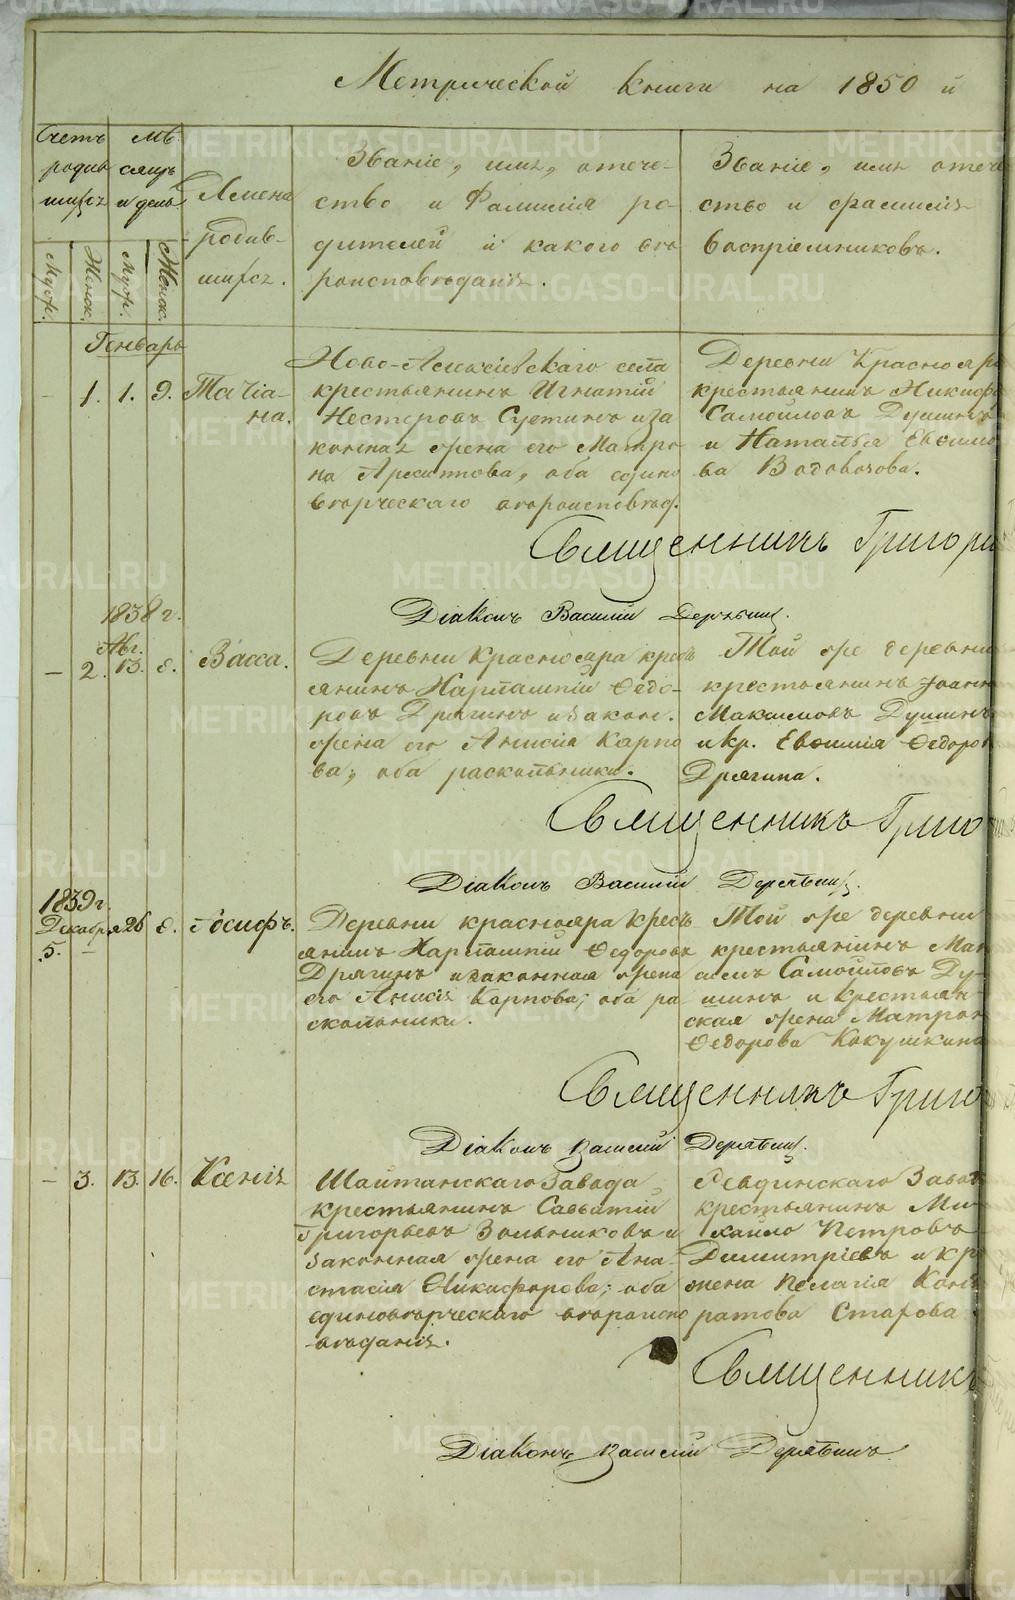 Метрической книги на 1850 й
Счетъ
родив
шихся
Муж.
Женск.
Мѣ
сяцъ
и день
Муж.
Женск.
Имена
родив-
шихся.
Званіе, имя, отече-
ство и Фамилія ро-
дителей и какого вѣ
роисповѣданія.
Званіе, имя отече
ство и фамилія
воспріемниковъ.
Генварь
- 1. 1. 9.
Татіа-
на.
Ново-Алексіевскаго села
крестьянинъ Игнатій
Нестеровъ Суетинъ и за
конная жена его Матро
на Архиппова, оба едино
вѣрческаго вѣроисповѣд.
Деревни Краснояр
крестьянинъ Никиф
Самойловъ Душинъ
и Наталья Евѳимо
ва Водовозова.
Священникъ Григорі
Діаконъ Василій Дерябинъ.
1838 г.
Авг.
- 2. 13. 8.
Васса.
Деревни Краснояра крест
янинъ Харлампій Ѳедо-
ровъ Дрягинъ и закон.
жена его Анисія Карпо
ва, оба раскольники.
Той же деревни
крестьянинъ Іоанн
Максимовъ Душинъ
и кр. Евѳимія Ѳедоро
Дрягина.
Священникъ Григо
Діаконъ Василій Дерябинъ.
1839 г.
Декабря 26 8.
5. -
Іосифъ.
Деревни красноярa крест
янинъ Харлампій Ѳедоровъ
Дрягинъ и законная жена
его Анисія Карпова; оба ра-
скольники.
Той же деревни
крестьянинъ Мак
симъ Самойловъ Ду-
шинъ и крестьян-
ская жена Матрон
Ѳедорова Кокушкина
Священникъ Григо
Діаконъ Василій Дерябинъ.
- 3. 13. 16.
Ксенія
Шайтанскаго Завода
крестьянинъ Савватій
Григорьевъ Зольниковъ и
законная жена его Ана-
стасія Никифорова; оба
единовѣрческаго вѣроиспо
вѣданія.
Ревдинскаго Завод
крестьянинъ Ми-
хайло Петровъ
Димитріевъ и кр
жена Пелагія Кон
ратова Старова
Священникъ
Діаконъ Василій Дерябинъ
METRIKI.GASO-URAL.RU